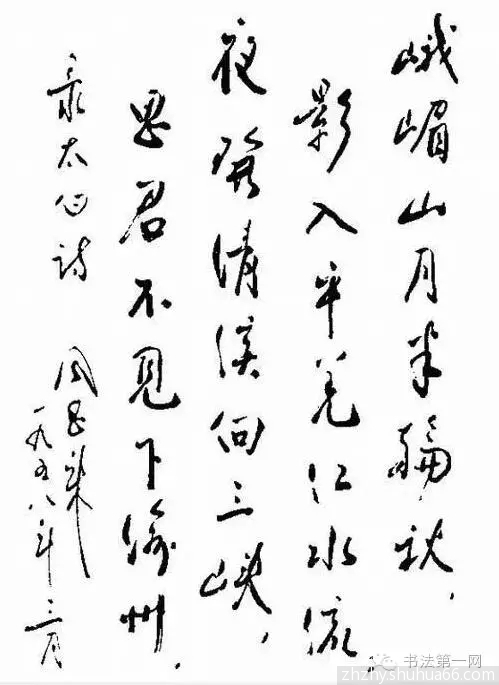 峨嵋山月半輪秋，
影入平羌江水流。
夜發清溪向三峡，
思君不見下渝州。
录太白诗
周恩来
一九五八年三月
书法第一网
zhzhyshuhua66.com